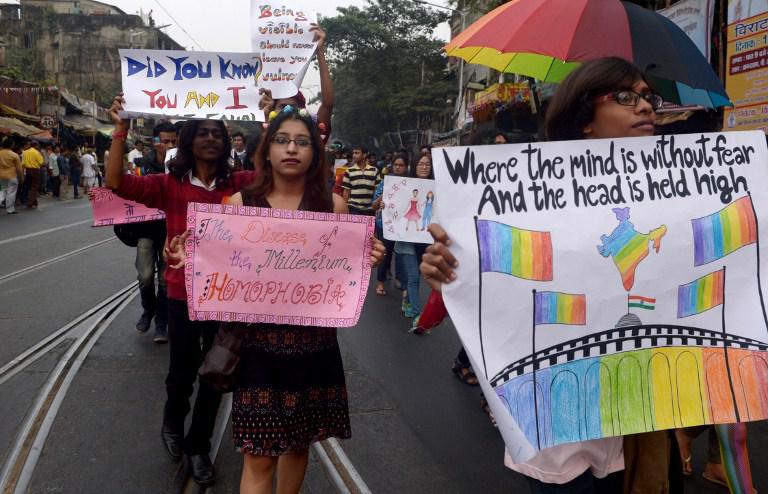 Being
visible
should never
leave you
DID YOU KNOW
YOU AND I
The Disease of
the Millenium,
"HOMOPHOBIA"
Where the mind is without fear
And the head is held high
विराट
दिनांक